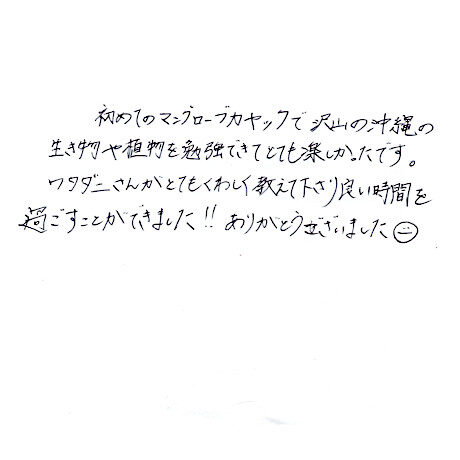 初めてのマングローブカヤックで沢山の沖縄の
生き物や植物を勉強できてとても楽しかったです。
ワタダニさんがとてもくわしく教えて下さり良い時間を
過ごすことができました!! ありがとうございました